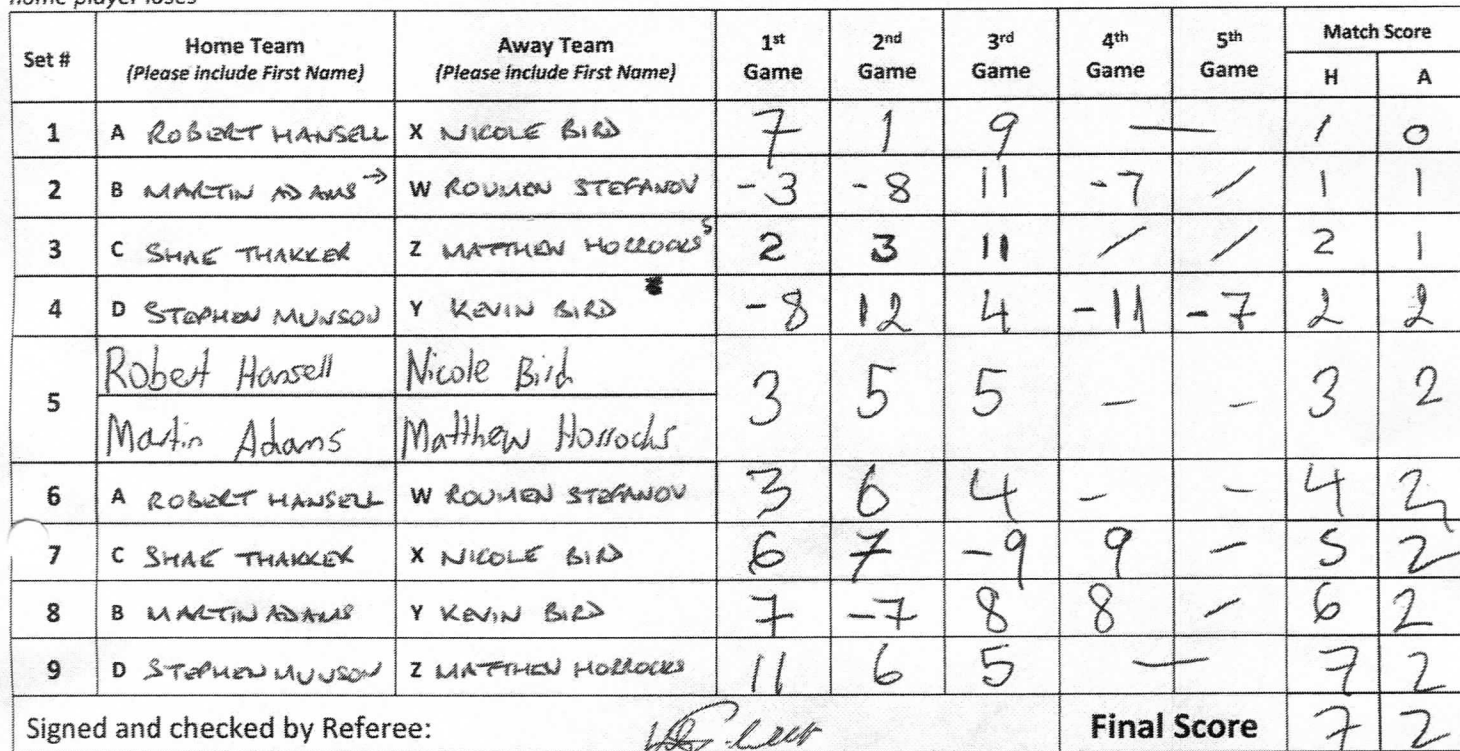 home player loses
Set # Home Team Away Team 1st 2nd 3rd 4th 5th Match Score
(Please include First Name) (Please include First Name) Game Game Game Game Game H A
1 A ROBERT HANSELL X NICOLE BIRD 7 1 9 — 1 0
2 B MARTIN ADAMS → W ROUMEN STEFANOV -3 -8 11 -7 / 1 1
3 C SHAE THAKKER Z MATTHEW HORROCKS 2 3 11 / / 2 1
4 D STEPHEN MUNSON Y KEVIN BIRD -8 12 4 -11 -7 2 2
5 Robert Hansell Nicole Bird 3 5 5 - - 3 2
Martin Adams Matthew Horrocks
6 A ROBERT HANSELL W ROUMEN STEFANOV 3 6 4 - - 4 2
7 C SHAE THAKKER X NICOLE BIRD 6 7 -9 9 - 5 2
8 B MARTIN ADAMS Y KEVIN BIRD 7 -7 8 8 - 6 2
9 D STEPHEN MUNSON Z MATTHEW HORROCKS 11 6 5 — 7 2
Signed and checked by Referee: Final Score 7 2